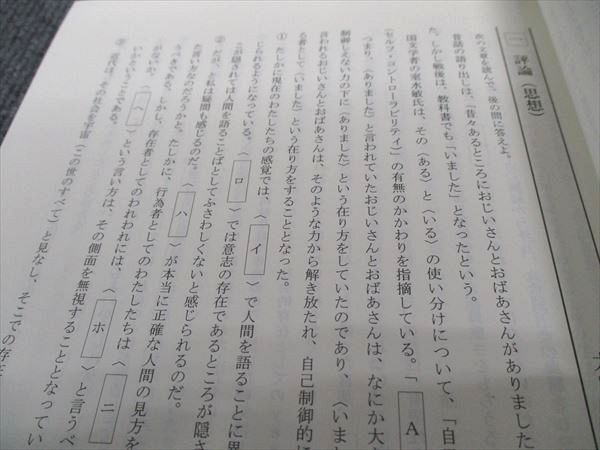 一 評論(思想)
次の文章を読んで、後の問に答えよ。
昔話の語り出しは、「昔々あるところにおじいさんとおばあさんがありました
た。しかし戦後は、教科書でも「いました」となったという。
国文学者の東水敏氏は、その〈ある〉と〈いる〉の使い分けについて、「自
(セルフ・コントローラビリティ)の有無のかかわりを指摘している。「A
つまり、〈ありました〉と言われていたおじいさんとおばあさんは、なにか大
制御しえない力の下に〈ありました〉という在り方をしていたのであり、〈いまし
言われるおじいさんとおばあさんは、そのような力から解き放たれ、自己制御的に
る者として〈いました〉という在り方をすることとなった。
① たしかに現在のわたしたちの感覚では、〈イ〉で人間を語ることに異
じられるようになっている。〈ロ〉では意志の存在であるところが隠さ
こが隠されては人間を語ることばとしてふさわしくないと感じられるのだ。
② だが、と私は疑問も感じるのだ。〈ハ〉が本当に正確な人間の見方を
た言い方なのだろうか。たしかに、行為者としてのわたしたちは〈ニ
うべきである。しかし、存在者としてのわれわれには、〈ホ〉と言うべ
がないか。〈ヘ〉という言い方は、その側面を無視することとなってい
いかということである。
③ 近代は、その社会を宇宙(この世のすべて)と見なし、そこでの存在